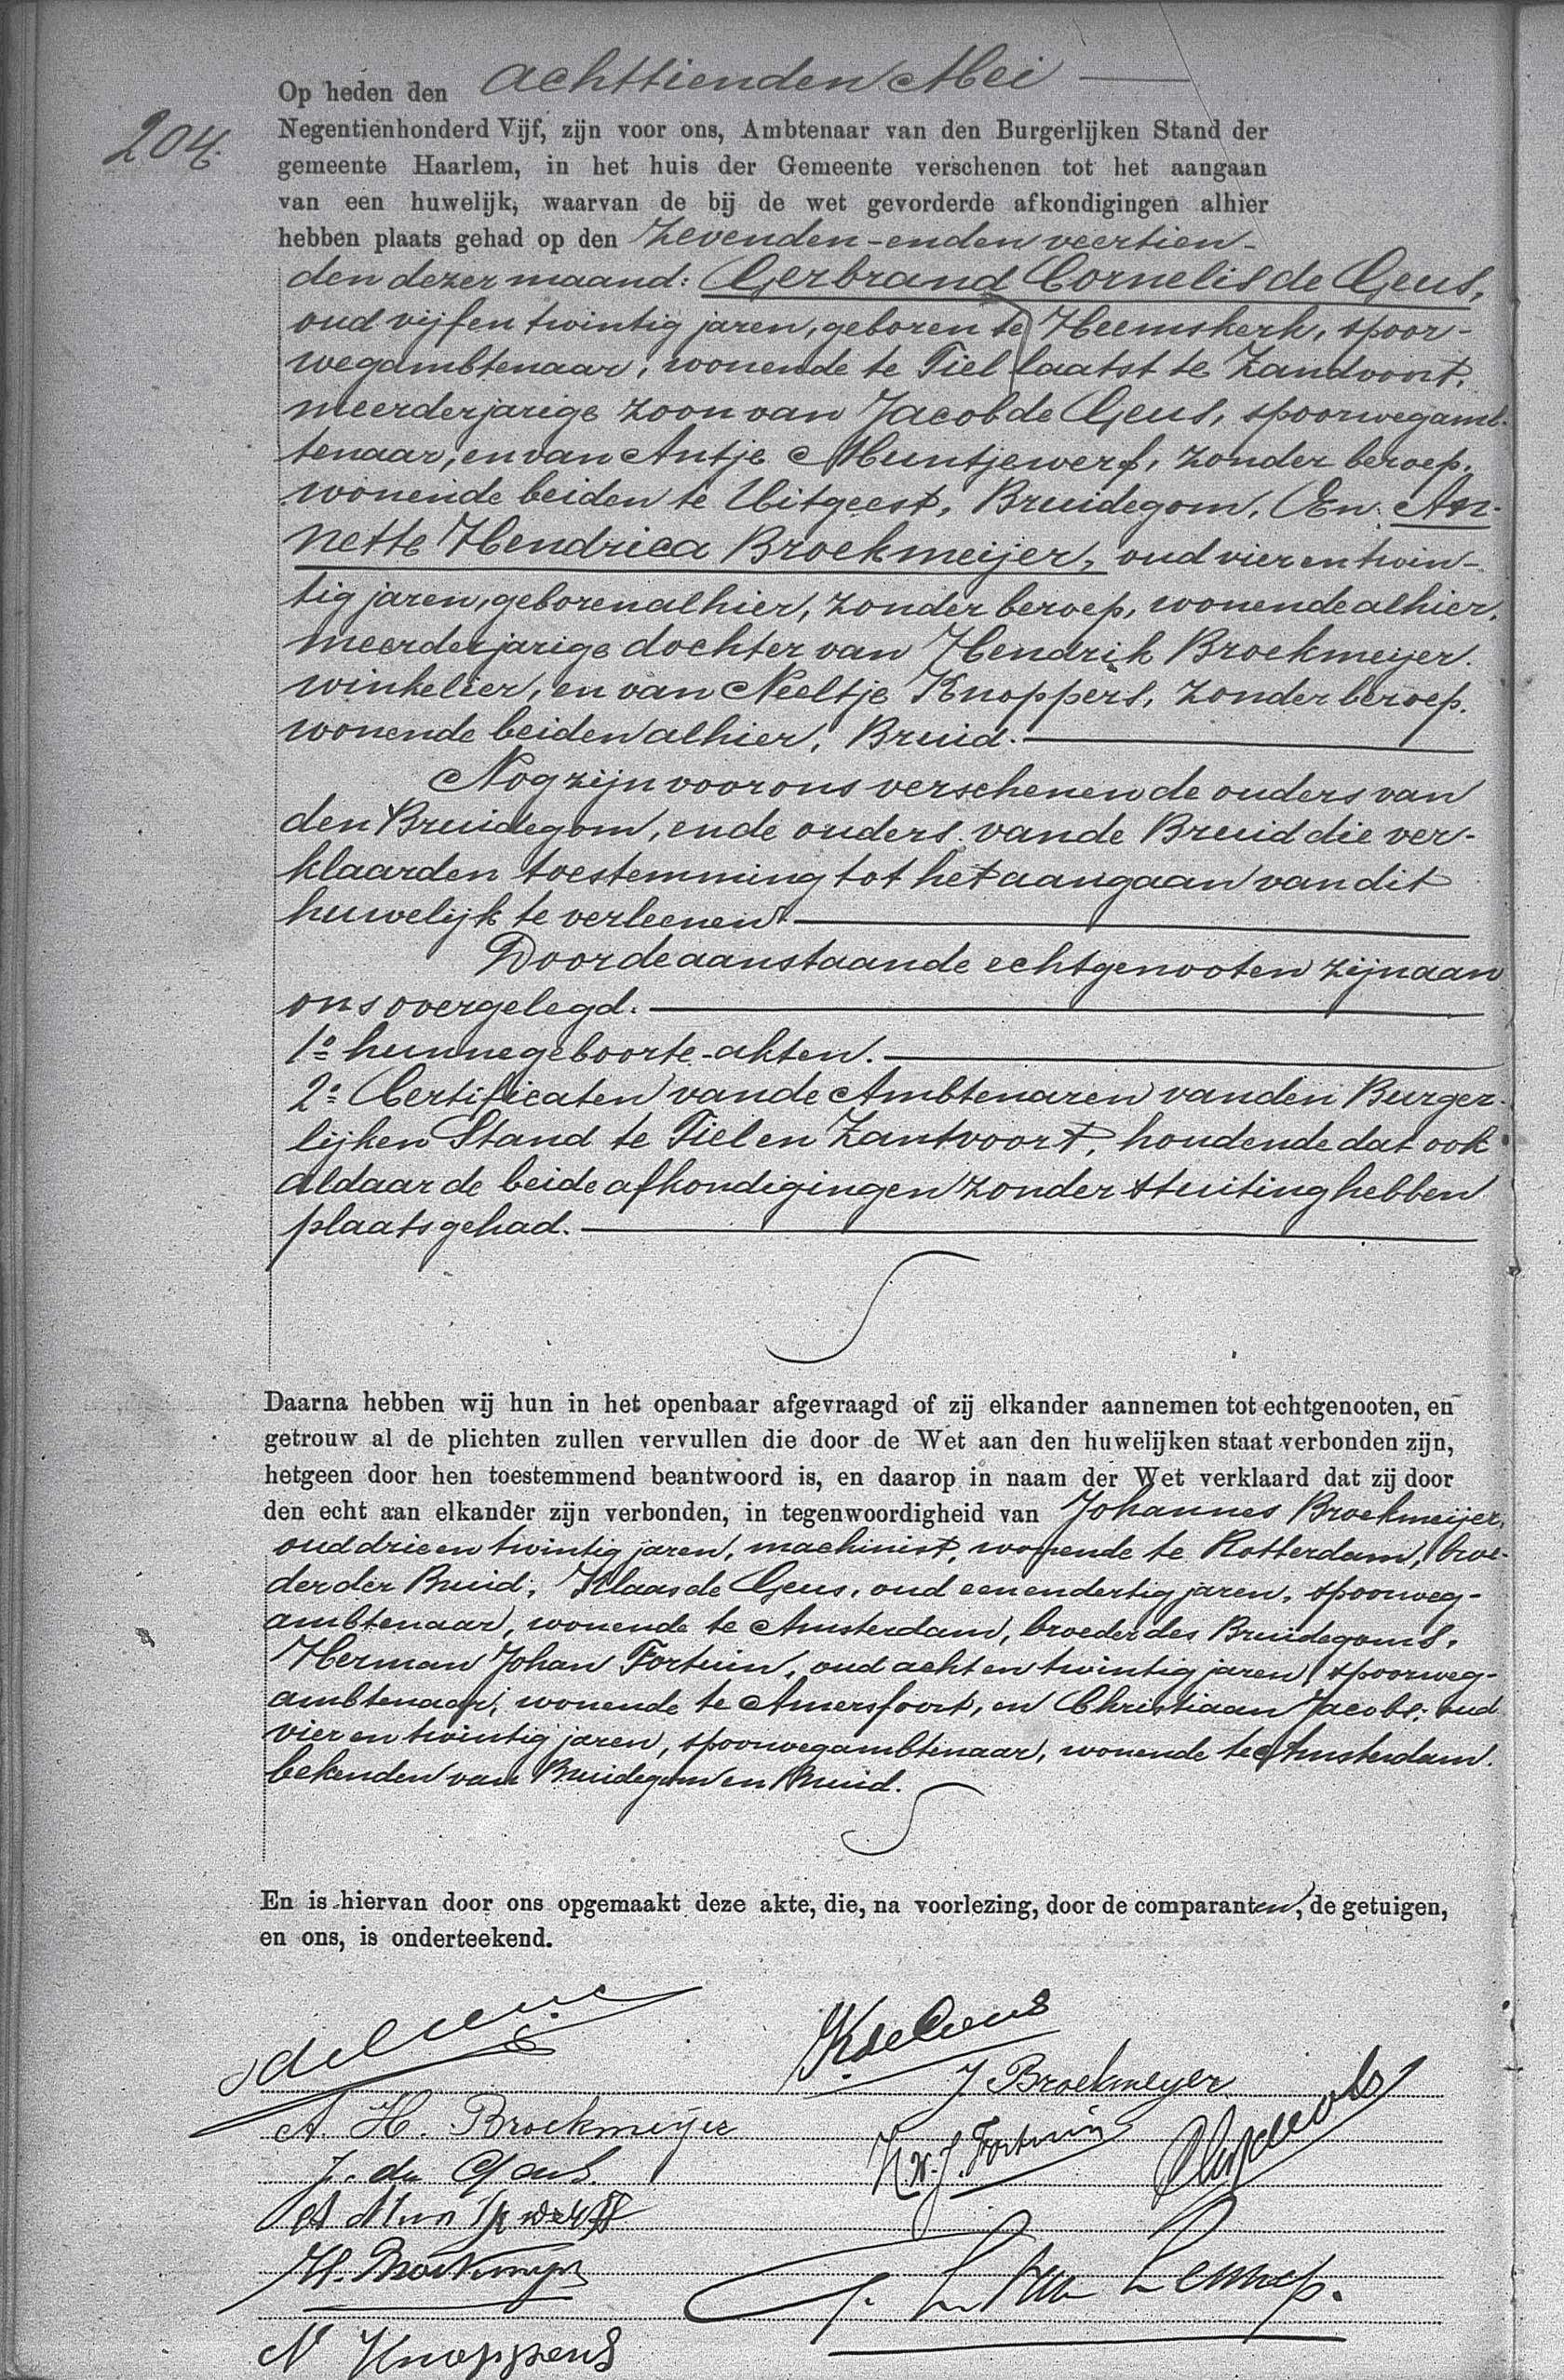 Op heden den achttienden Mei
204.
Negentienhonderd Vijf, zijn voor ons, Ambtenaar van den Burgerlijken Stand der
gemeente Haarlem, in het huis der Gemeente verschenen tot het aangaan
van een huwelijk, waarvan de bij de wet gevorderde afkondigingen alhier
hebben plaats gehad op den zevenden-enden veertien-
den dezer maand: Gerbrand Cornelis de Geus,
oud vijfentwintig jaren, geboren te Heemskerk, spoor-
wegambtenaar, wonende te Tiel laatst te Zandvoort,
meerderjarige zoon van Jacob de Geus, spoorwegamb-
tenaar, en van Antje Muntjewerf, zonder beroep,
wonende beiden te Uitgeest, Bruidegom, En An-
nette Hendrica Broekmeijer, oud vierentwin-
tig jaren, geboren alhier, zonder beroep, wonende alhier,
meerderjarige dochter van Hendrik Broekmeijer.
winkelier, en van Neeltje Knoppers, zonder beroep.
wonende beiden alhier, Bruid.
Nog zijn voor ons verschenen de ouders van
den Bruidegom, en de ouders van de Bruid die ver-
klaarden toestemming tot het aangaan van dit
huwelijk te verleenen.
Door de aanstaande echtgenooten zijn aan
ons overgelegd.
1º hunne geboorte-akten.
2º Certificaten van de Ambtenaren van den Burger-
lijken Stand te Tiel en Zantvoort, houdende dat ook
aldaar de beide afkondigingen zonder stuiting hebben
plaats gehad.
Daarna hebben wij hun in het openbaar afgevraagd of zij elkander aannemen tot echtgenooten, en
getrouw al de plichten zullen vervullen die door de Wet aan den huwelijken staat verbonden zijn,
hetgeen door hen toestemmend beantwoord is, en daarop in naam der Wet verklaard dat zij door
den echt aan elkander zijn verbonden, in tegenwoordigheid van Johannes Broekmeijer,
oud drieentwintig jaren, machinist, wonende te Rotterdam, broe-
der der Bruid, Klaas de Geus, oud eenendertig jaren, spoorweg-
ambtenaar, wonende te Amsterdam, broeder des Bruidegoms,
Herman Johan Fortuin, oud achtentwintig jaren, spoorweg-
ambtenaar, wonende te Amersfoort, en Christiaan Jacobs, oud
vierentwintig jaren, spoorwegambtenaar, wonende te Amsterdam.
bekenden van Bruidegom en Bruid.
En is hiervan door ons opgemaakt deze akte, die, na voorlezing, door de comparanten, de getuigen,
en ons, is onderteekend.
de Geus
K de Geus
J Broekmeyer
A. H. Broekmeijer
H. J. Fortuin
J. de Geus.
H. Broekmeyer
N Knoppers